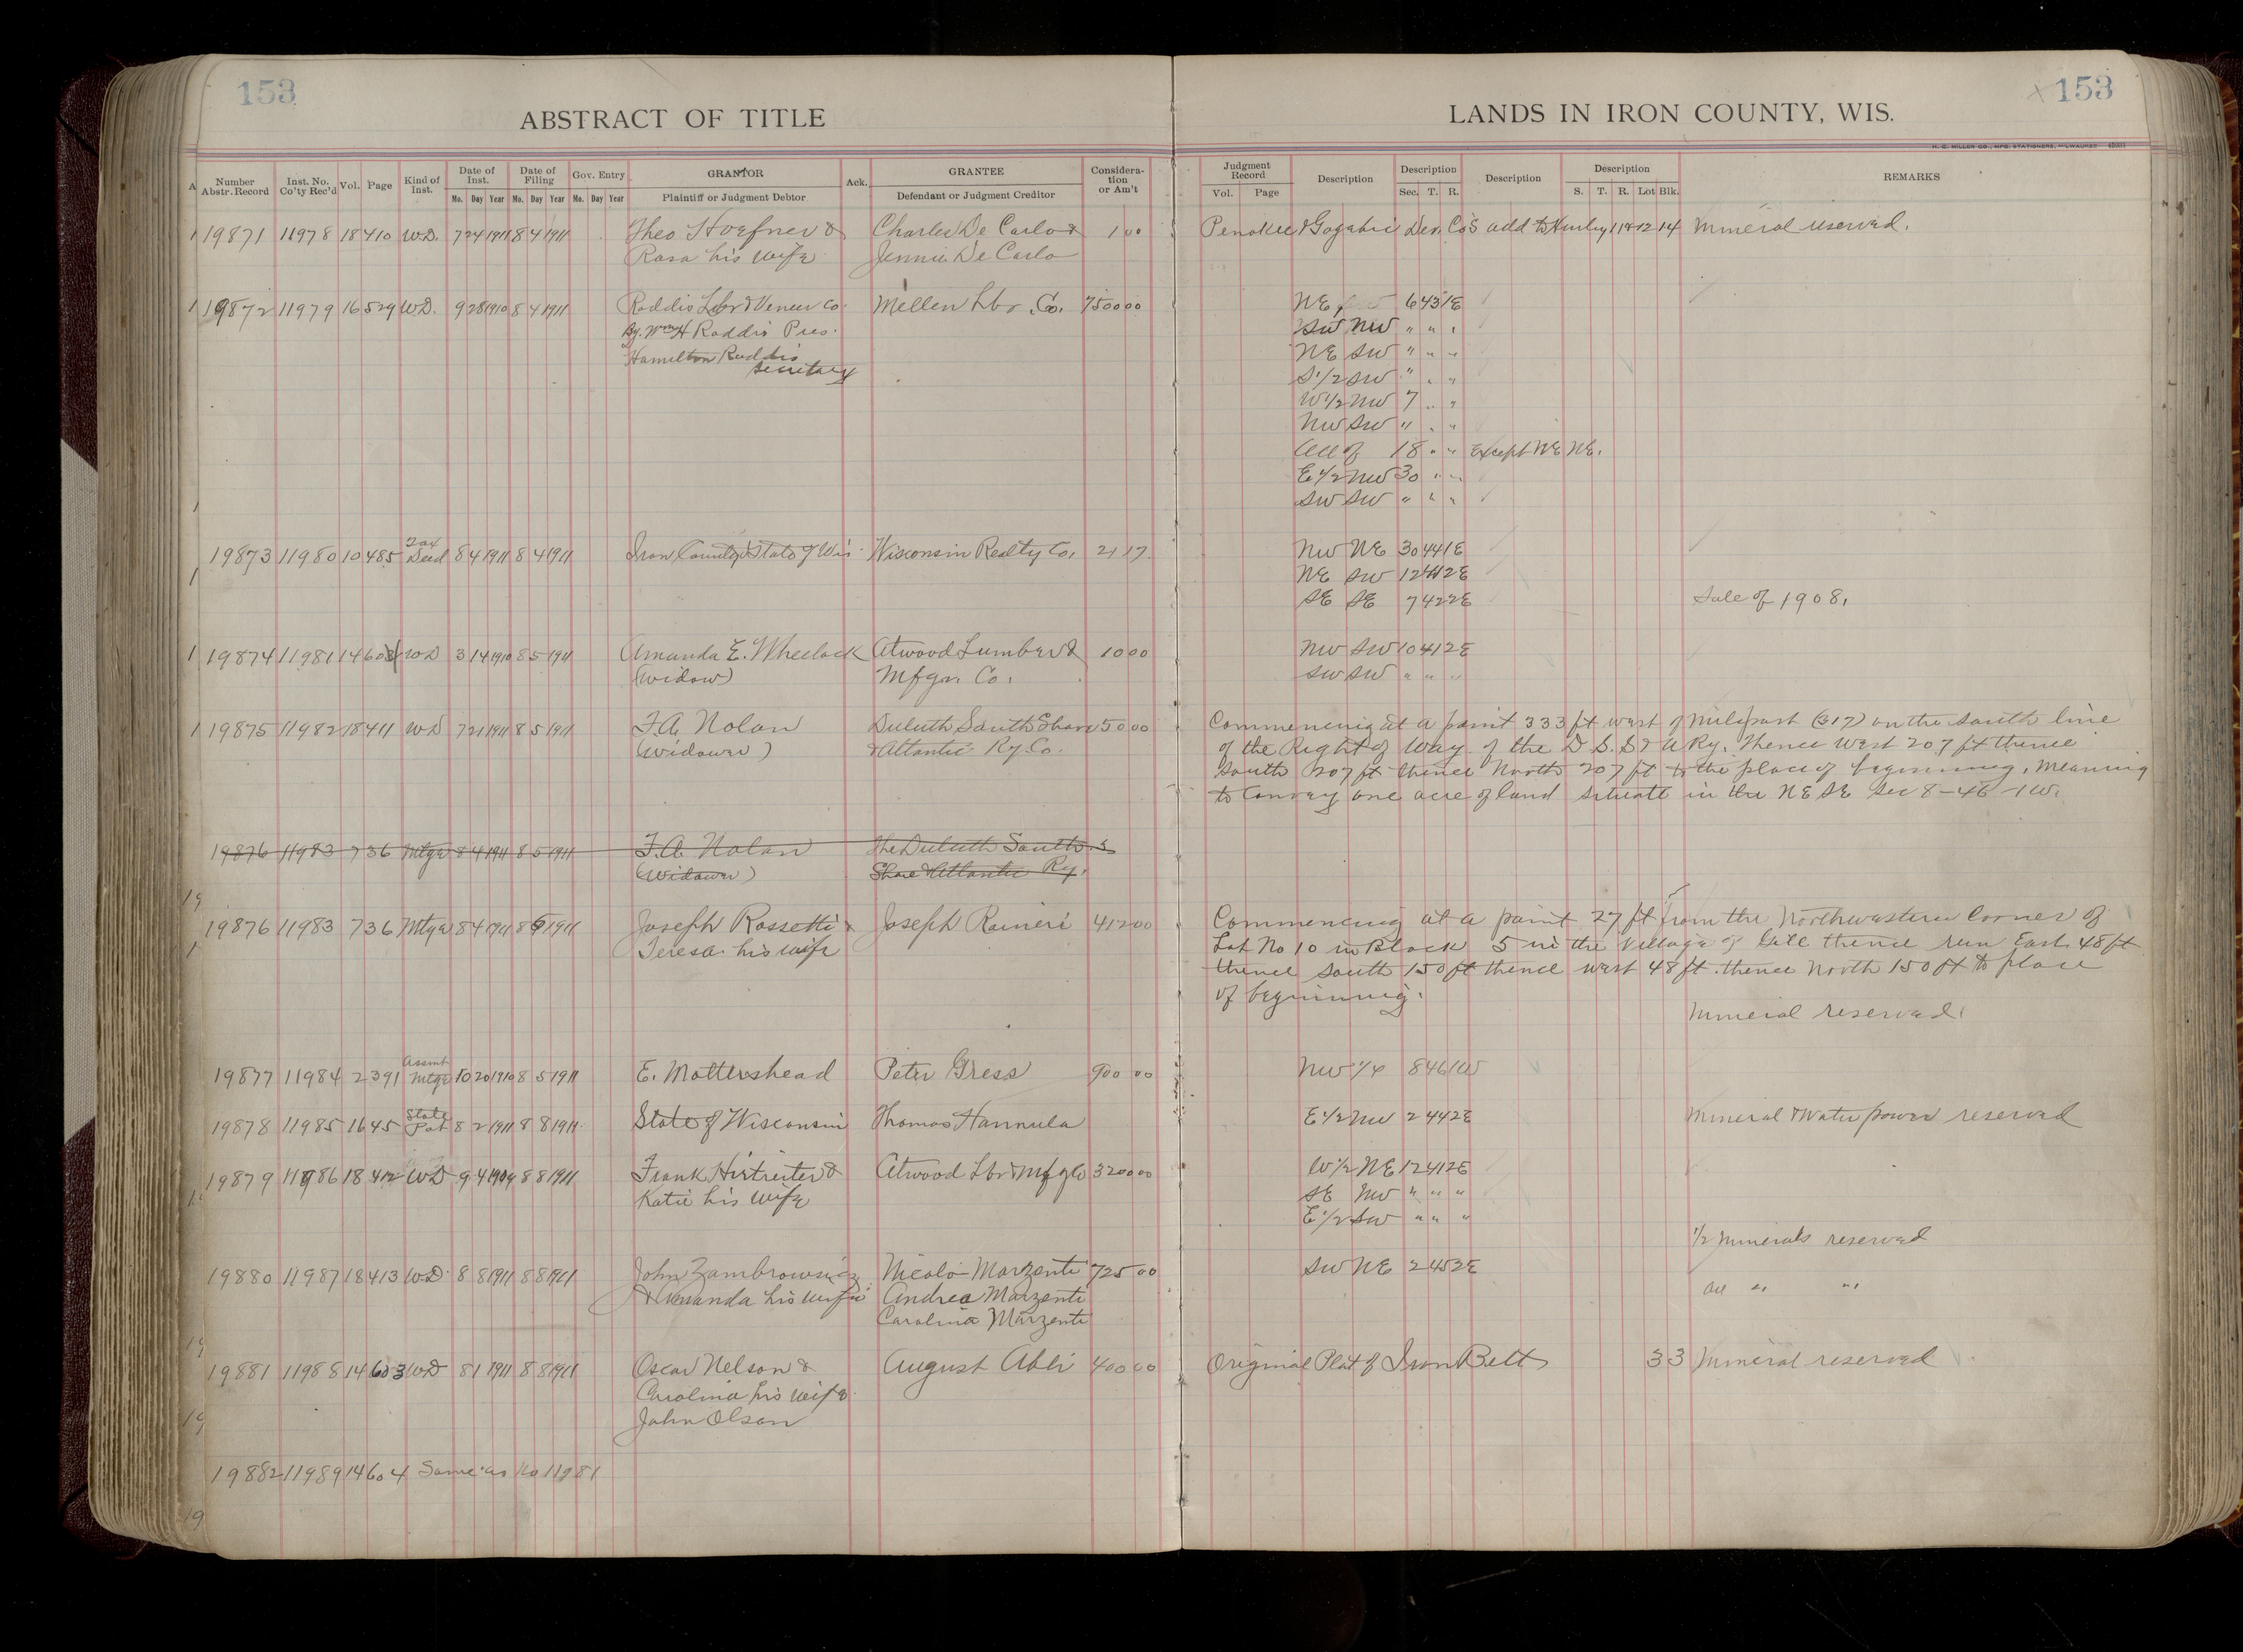 153
153
ABSTRACT OF TITLE
LANDS IN IRON COUNTY, WIS.
H. C. MILLER CO., MFG. STATIONERS, MILWAUKEE
A Number Abstr. Record
Inst. No. Co'ty Rec'd
Vol.
Page
Kind of Inst.
Date of Inst.
Mo. Day Year
Date of Filing
Mo. Day Year
Gov. Entry
Mo. Day Year
GRANTOR
Plaintiff or Judgment Debtor
Ack.
GRANTEE
Defendant or Judgment Creditor
Considera-
tion
or Am't
Judgment Record
Vol. Page
Description
Description
Sec. T. R.
Description
Description
S. T. R. Lot Blk.
REMARKS
19871 11978 18 410 W.D. 7 24 1911 8 4 1911 Theo Hoefner & Charles De Carlo & 1 00 Penokee & Gogebic Dev. Co's add to Hurley 11 & 12 14 Mineral reserved.
Rosa his wife Jennie De Carlo
19872 11979 16 529 W.D. 9 28 1910 8 4 1911 Roddis Lbr & Veneer Co. Mellen Lbr. Co. 7500 00 NE 6 43 1E
By. Wm H Roddis Pres. SW NW " " "
Hamilton Roddis NE SW " " "
Secretary S 1/2 SW " " "
W 1/2 NW 7 " "
NW SW " " "
All of 18 " " Except NE NE.
E 1/2 NW 30 " "
SW SW " " "
19873 11980 10 485 Tax Deed 8 4 1911 8 4 1911 Iron County & State of Wis. Wisconsin Realty Co. 21 17 NW NE 30 44 1E
NE SW 12 41 2E
SE SE 7 42 2E Sale of 1908.
19874 11981 14 603 WD 3 14 1910 8 5 1911 Amanda E. Wheelock Atwood Lumber & 10 00 NW SW 10 41 2E
(widow) Mfgn. Co. SW SW " " "
19875 11982 18 411 WD 7 21 1911 8 5 1911 F.A. Nolan Duluth South Shore 50 00 Commencing at a point 333 ft west of mile post (317) on the south line
(widower) & Atlantic Ry. Co. of the Right of Way of the D.S.S & A Ry. thence West 207 ft thence
South 207 ft thence North 207 ft to the place of beginning. Meaning
to convey one acre of land situate in the NE SE Sec 8-46-1W.
19876 11983 7 36 Mtge 8 4 1911 8 5 1911 F.A. Nolan The Duluth South
(widower) Shore & Atlantic Ry.
19876 11983 7 36 Mtge 8 4 1911 8 5 1911 Joseph Rossetti & Joseph Raineri 412 00 Commencing at a point 27 ft from the Northwestern Corner of
Teresa his wife Lot No 10 in Block 5 in the Village of Gile thence run East 48 ft
thence south 150 ft thence west 48 ft. thence North 150 ft to place
of beginning.
Mineral reserved.
19877 11984 2 391 Assmt Mtge 10 20 1910 8 5 1911 E. Mottershead Peter Gress 900 00 NW 1/4 8 46 1W
19878 11985 1 645 State Pat 8 2 1911 8 8 1911 State of Wisconsin Thomas Hannula E 1/2 NW 2 44 2E Mineral & Water power reserved
19879 11986 18 412 WD 9 4 1909 8 8 1911 Frank Hirtreiter & Atwood Lbr & Mfg Co 3200 00 W 1/2 NE 12 41 2E
Katie his wife SE NW " " "
E 1/2 SW " " "
1/2 Minerals reserved
19880 11987 18 413 WD 8 8 1911 8 8 1911 John Nicolo Marzenti 725 00 SW NE 2 45 2E
his wife Andrea Marzenti All " "
Carolina Marzenti
19881 11988 14 603 WD 8 1 1911 8 8 1911 Oscar Nelson & August Abli 400 00 Original Plat of Iron Belt 3 3 Mineral reserved
Carolina his wife
John Olson
19882 11989 14 604 Same as No 11981